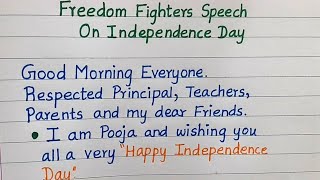 Freedom Fighters Speech
On Independence Day
Good Morning Everyone.
Respected Principal, Teachers,
Parents and my dear Friends.
• I am Pooja and wishing you
all a very "Happy Independence
Day"